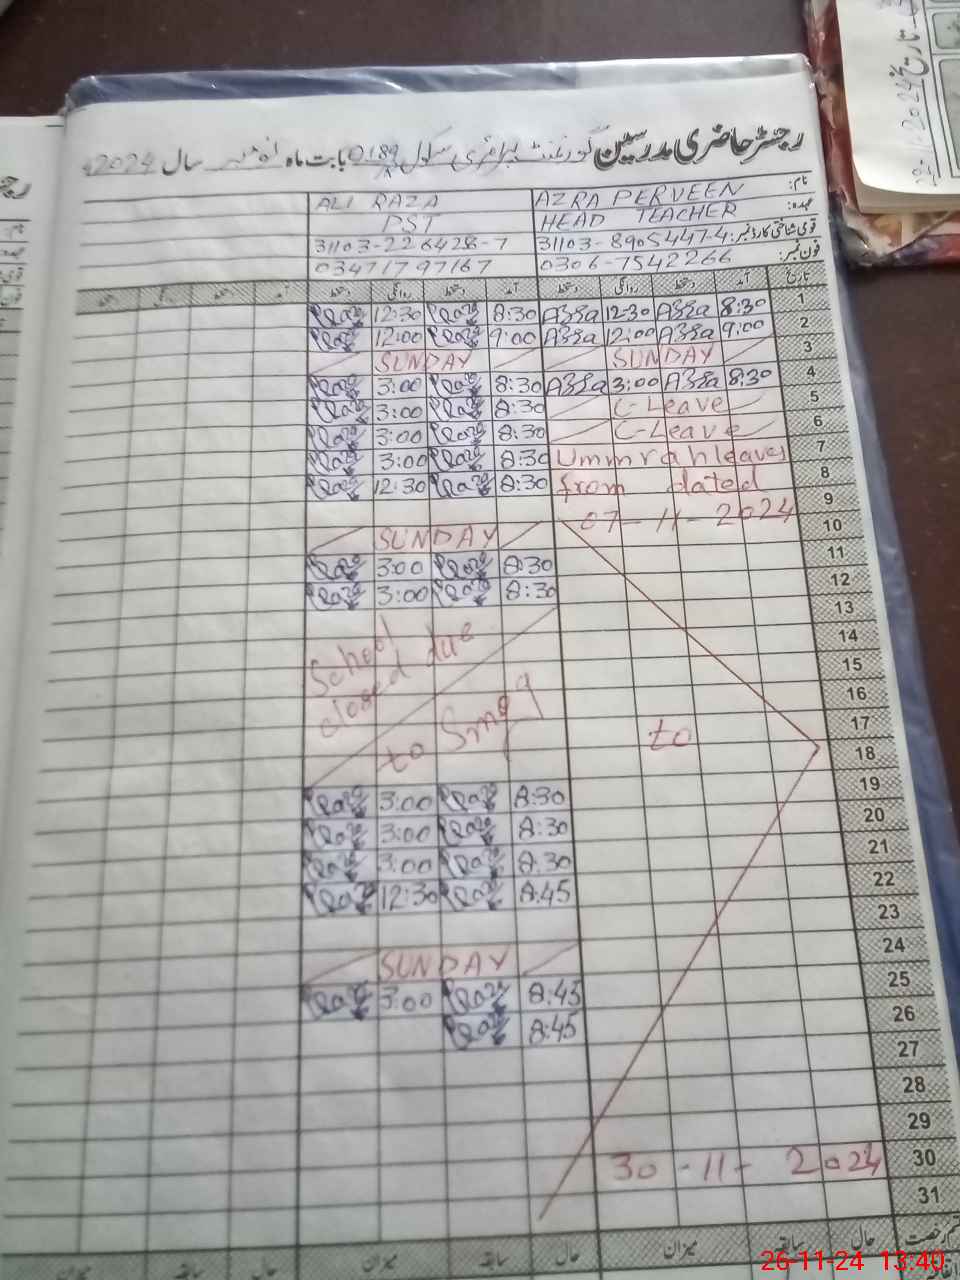 رجسٹر حاضری مدرسین گورنمنٹ پرائمری سکول بابت ماہ نومبر سال 2024ء
نام: AZRA PERVEEN ALI RAZA
عہدہ: HEAD TEACHER PST
قومی شناختی کارڈ نمبر: 31103-8905447-4 31103-226428-7
فون نمبر: 0306-7542266 03471797167
تاریخ آمد دستخط روانگی دستخط آمد دستخط روانگی دستخط آمد دستخط روانگی دستخط
1 8:30 Azra 12-30 Azra 8:30 Raza 12:30 Raza
2 9:00 Azra 12:00 Azra 9:00 Raza 12:00 Raza
3 SUNDAY SUNDAY
4 8:30 Azra 3:00 Azra 8:30 Raza 3:00 Raza
5 C-Leave 8:30 Raza 3:00 Raza
6 C-Leave 8:30 Raza 3:00 Raza
7 Ummrah leaves 8:30 Raza 3:00 Raza
8 from dated 8:30 Raza 12:30 Raza
9 07-11-2024
10 SUNDAY
11 8:30 Raza 3:00 Raza
12 8:30 Raza 3:00 Raza
13
14 School due
15 closed
16
17 to to Smog
18
19 8:30 Raza 3:00 Raza
20 8:30 Raza 3:00 Raza
21 8:30 Raza 3:00 Raza
22 8:45 Raza 12:30 Raza
23
24 SUNDAY
25 8:45 Raza 3:00 Raza
26 8:45 Raza
27
28
29
30 30-11-2024
31
حال سابقہ میزان حال سابقہ میزان حال سابقہ میزان
26-11-24 13:40